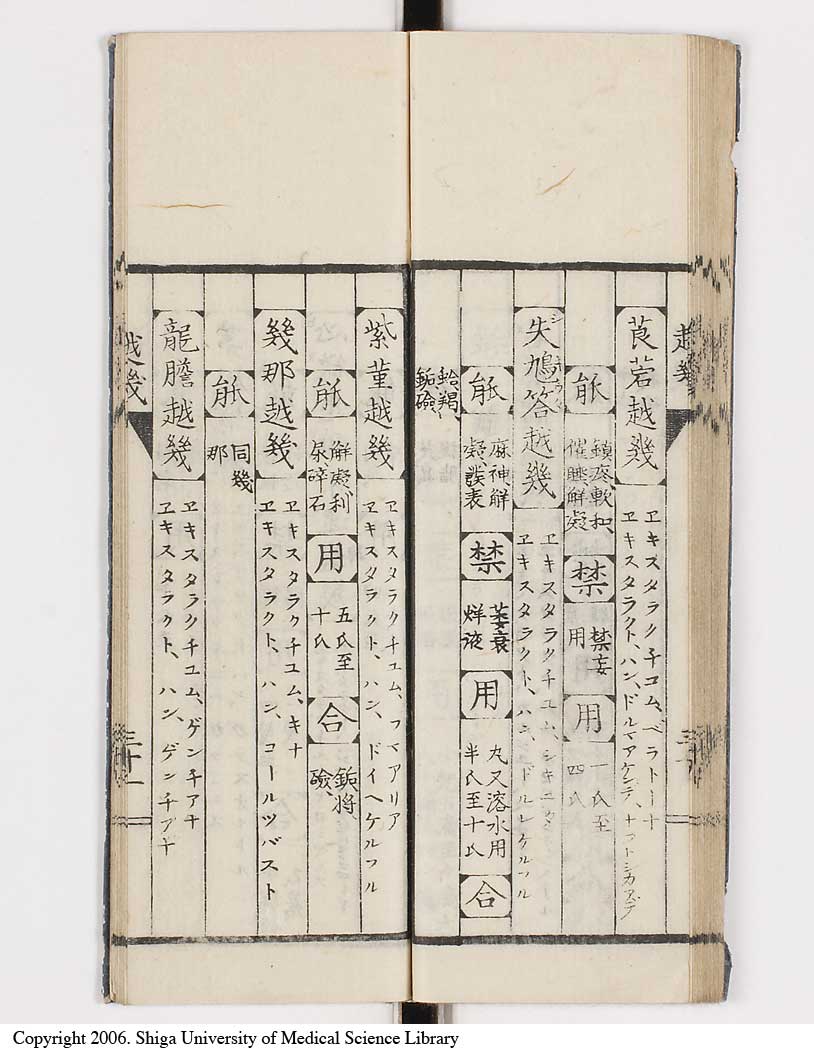 莨菪越幾
ヱキスタラクチユム、ベラトーナ
ヱキスタラクト、ハン、ドルマアケンデ、ナフトシカアデ
能
鎮疼軟和、
催睡解凝
禁
禁妄
用
用
一氏至
四氏
失鳩答越幾
ヱキスタラクチユム、シキユタ
ヱキスタラクト、ハン、ドルレケルフル
能
麻神解
凝誘表
禁
萎衰
烊液
用
丸又溶水用
半氏至十氏
合
蛤、羯、
鉐、礆
紫菫越幾
ヱキスタラクチユム、フマアリア
ヱキスタラクト、ハン、ドイヘケルフル
能
解凝、利
尿、碎石
用
五氏至
十氏
合
鉐、将、
礆、
幾那越幾
ヱキスタラクチユム、キナ
ヱキスタラクト、ハン、コールツバスト
能
同幾
那
龍膽越幾
ヱキスタラクチユム、ゲンチアナ
ヱキスタラクト、ハン、ゲンチアナ
越幾
三十一
Copyright 2006. Shiga University of Medical Science Library